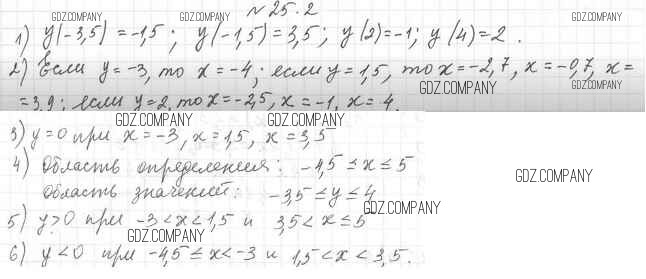 № 25.2
GDZ.COMPANY GDZ.COMPANY GDZ.COMPANY
1) y(-3,5) = -1,5; y(-1,5) = 3,5; y(2) = -1; y(4) = 2.
2) Если y = -3, то x = -4; если y = 1,5, то x = -2,7, x = -0,7, x =
GDZ.COMPANY GDZ.COMPANY
= 3,9; если y = 2, то x = -2,5, x = -1, x = 4.
GDZ.COMPANY GDZ.COMPANY
3) y = 0 при x = -3, x = 1,5, x = 3,5
4) Область определения: -4,5 ≤ x ≤ 5
GDZ.COMPANY
область значений: -3,5 ≤ y ≤ 4
GDZ.COMPANY
5) y > 0 при -3 < x < 1,5 и 3,5 < x ≤ 5
GDZ.COMPANY
6) y < 0 при -4,5 ≤ x < -3 и 1,5 < x < 3,5.